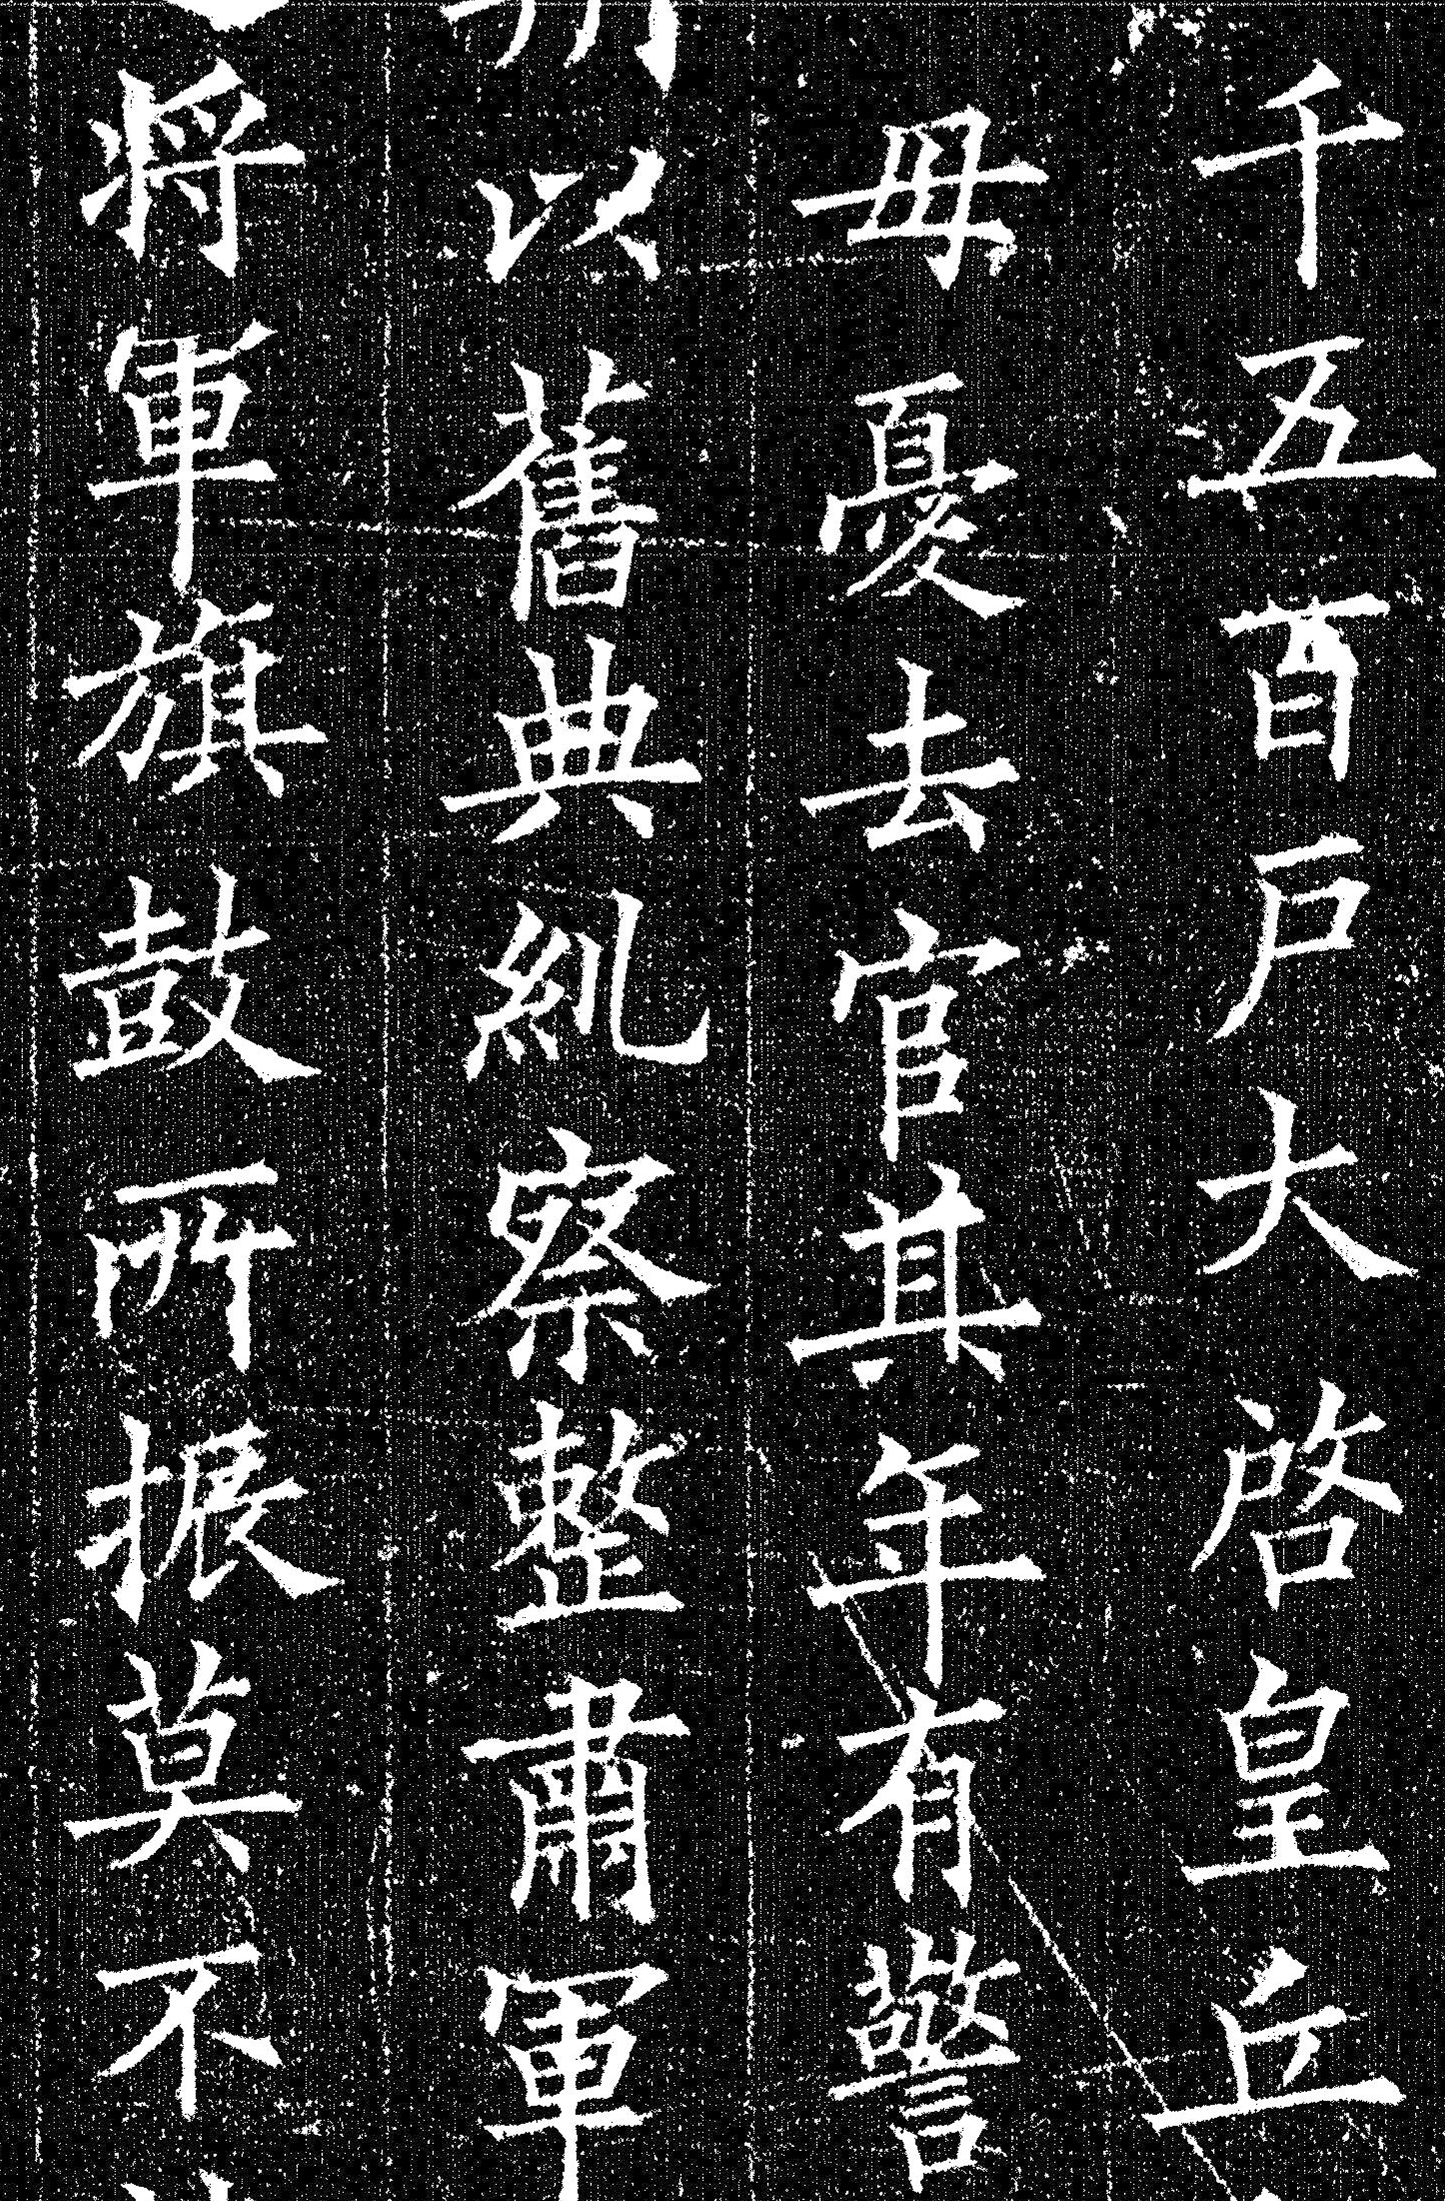 千五百戶大啓皇丘
毋憂去官其年有警
以舊典糺察整肅軍
將軍旗鼓所振莫不